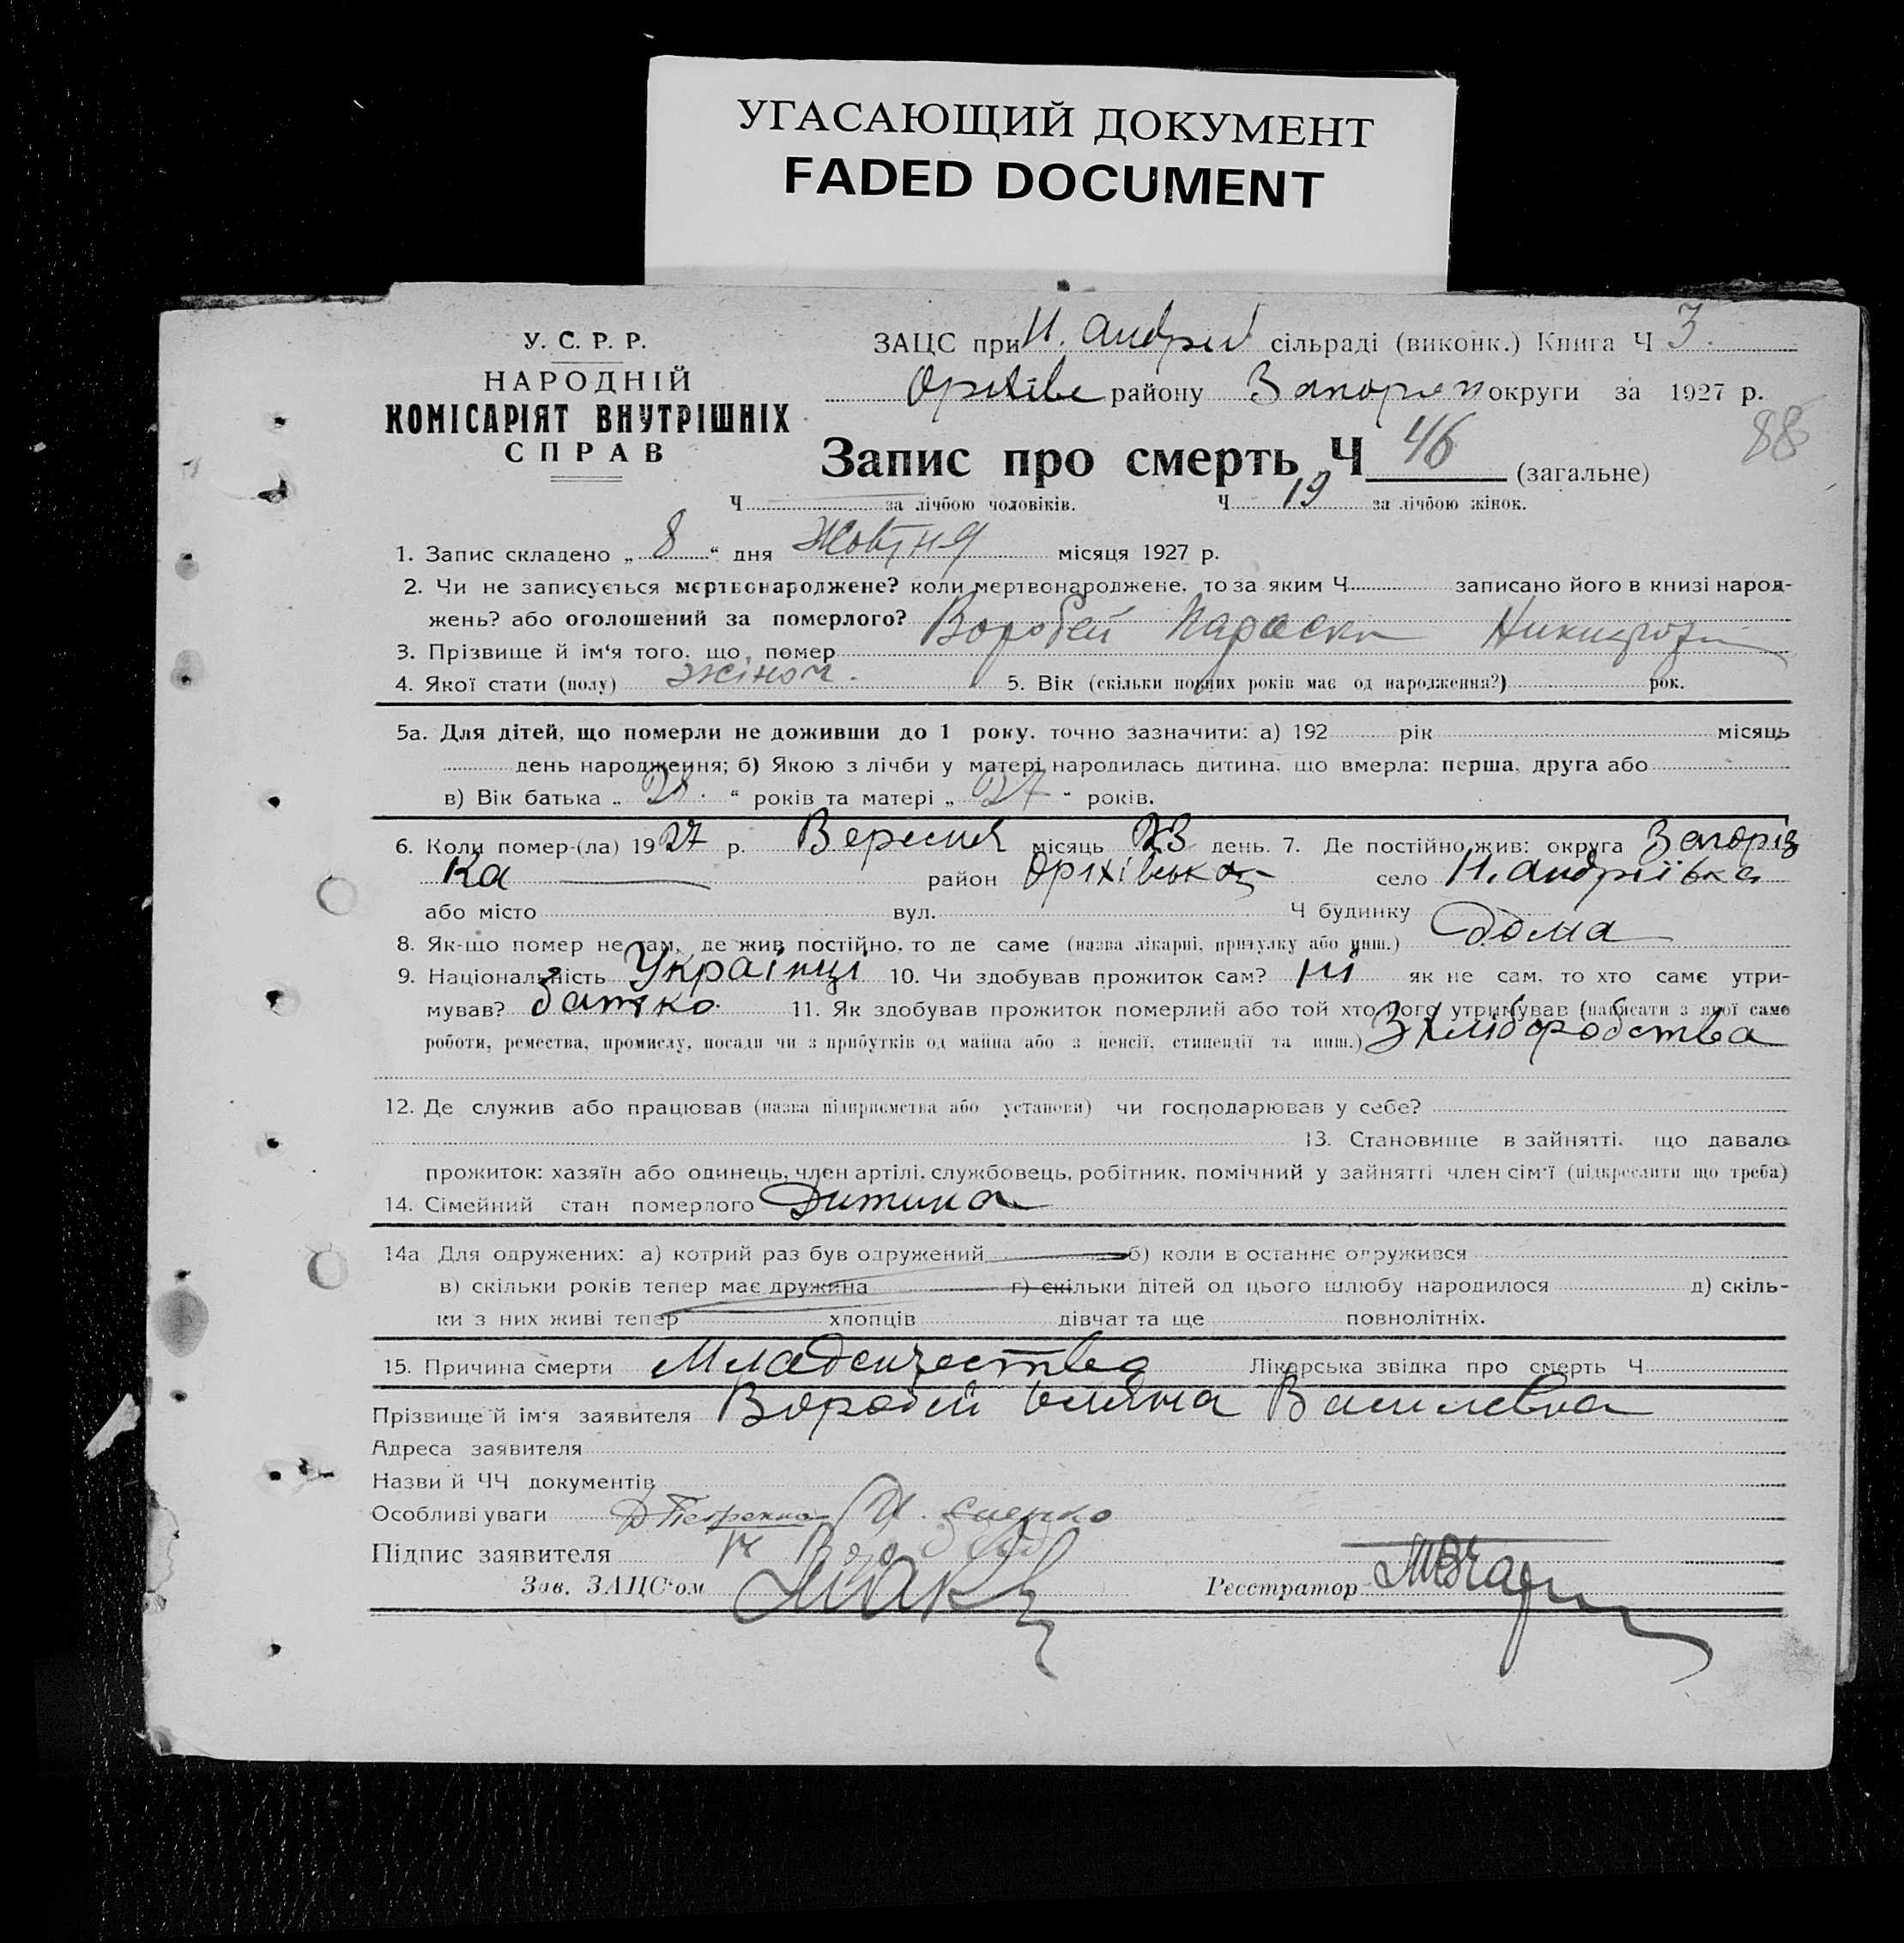 УГАСАЮЩИЙ ДОКУМЕНТ
FADED DOCUMENT
У. С. Р. Р.
НАРОДНІЙ
КОМІСАРІЯТ ВНУТРІШНІХ
СПРАВ
ЗАЦС при Н. Андрїв сільраді (виконк.) Книга Ч 3.
Оріхівс району Запоріз округи за 1927 р.
88
Запис про смерть Ч 46 (загальне)
Ч за лічбою чоловіків. Ч 19 за лічбою жінок.
1. Запис складено „ 8 “ дня Жовтня місяця 1927 р.
2. Чи не записується мертвонароджене? коли мертвонароджене, то за яким Ч записано його в книзі народ-
жень? або оголошений за померлого?
3. Прізвище й ім‘я того, що помер Воробей Параска
4. Якої стати (полу) жіноч. 5. Вік (скільки повних років має од народження?) рок.
5а. Для дітей, що померли не доживши до 1 року, точно зазначити: а) 192 рік місяць
день народження; б) Якою з лічби у матері народилась дитина, що вмерла: перша, друга або
в) Вік батька „ 28. “ років та матері „ 27 “ років.
6. Коли помер-(ла) 1927 р. Вересня місяць 23 день. 7. Де постійно жив: округа Запоріз
ка район Оріхівськ село Н. Андріївка
або місто вул. Ч будинку
8. Як-що помер не там, де жив постійно, то де саме (назва лікарні, притулку або инш.) дома
9. Національність Українці 10. Чи здобував прожиток сам? ні як не сам, то хто саме утри-
мував? батько. 11. Як здобував прожиток померлий або той хто його утримував (написати з якої саме
роботи, ремества, промислу, посади чи з прибутків од майна або з пенсії, стипендії та инш.) З хліборобства
12. Де служив або працював (назва підприємства або установи) чи господарював у себе?
13. Становище в зайнятті, що давало
прожиток: хазяїн або одинець, член артілі, службовець, робітник, помічний у зайнятті член сім‘ї (підкреслити що треба)
14. Сімейний стан померлого Дитина
14а Для одружених: а) котрий раз був одружений б) коли в останнє одружився
в) скільки років тепер має дружина г) скільки дітей од цього шлюбу народилося д) скіль-
ки з них живі тепер хлопців дівчат та ще повнолітніх.
15. Причина смерти Младенчества Лікарська звідка про смерть Ч
Прізвище й ім‘я заявителя Воробей Василевна
Адреса заявителя
Назви й ЧЧ документів
Особливі уваги
Підпис заявителя
Зав. ЗАЦС‘ом Реєстратор